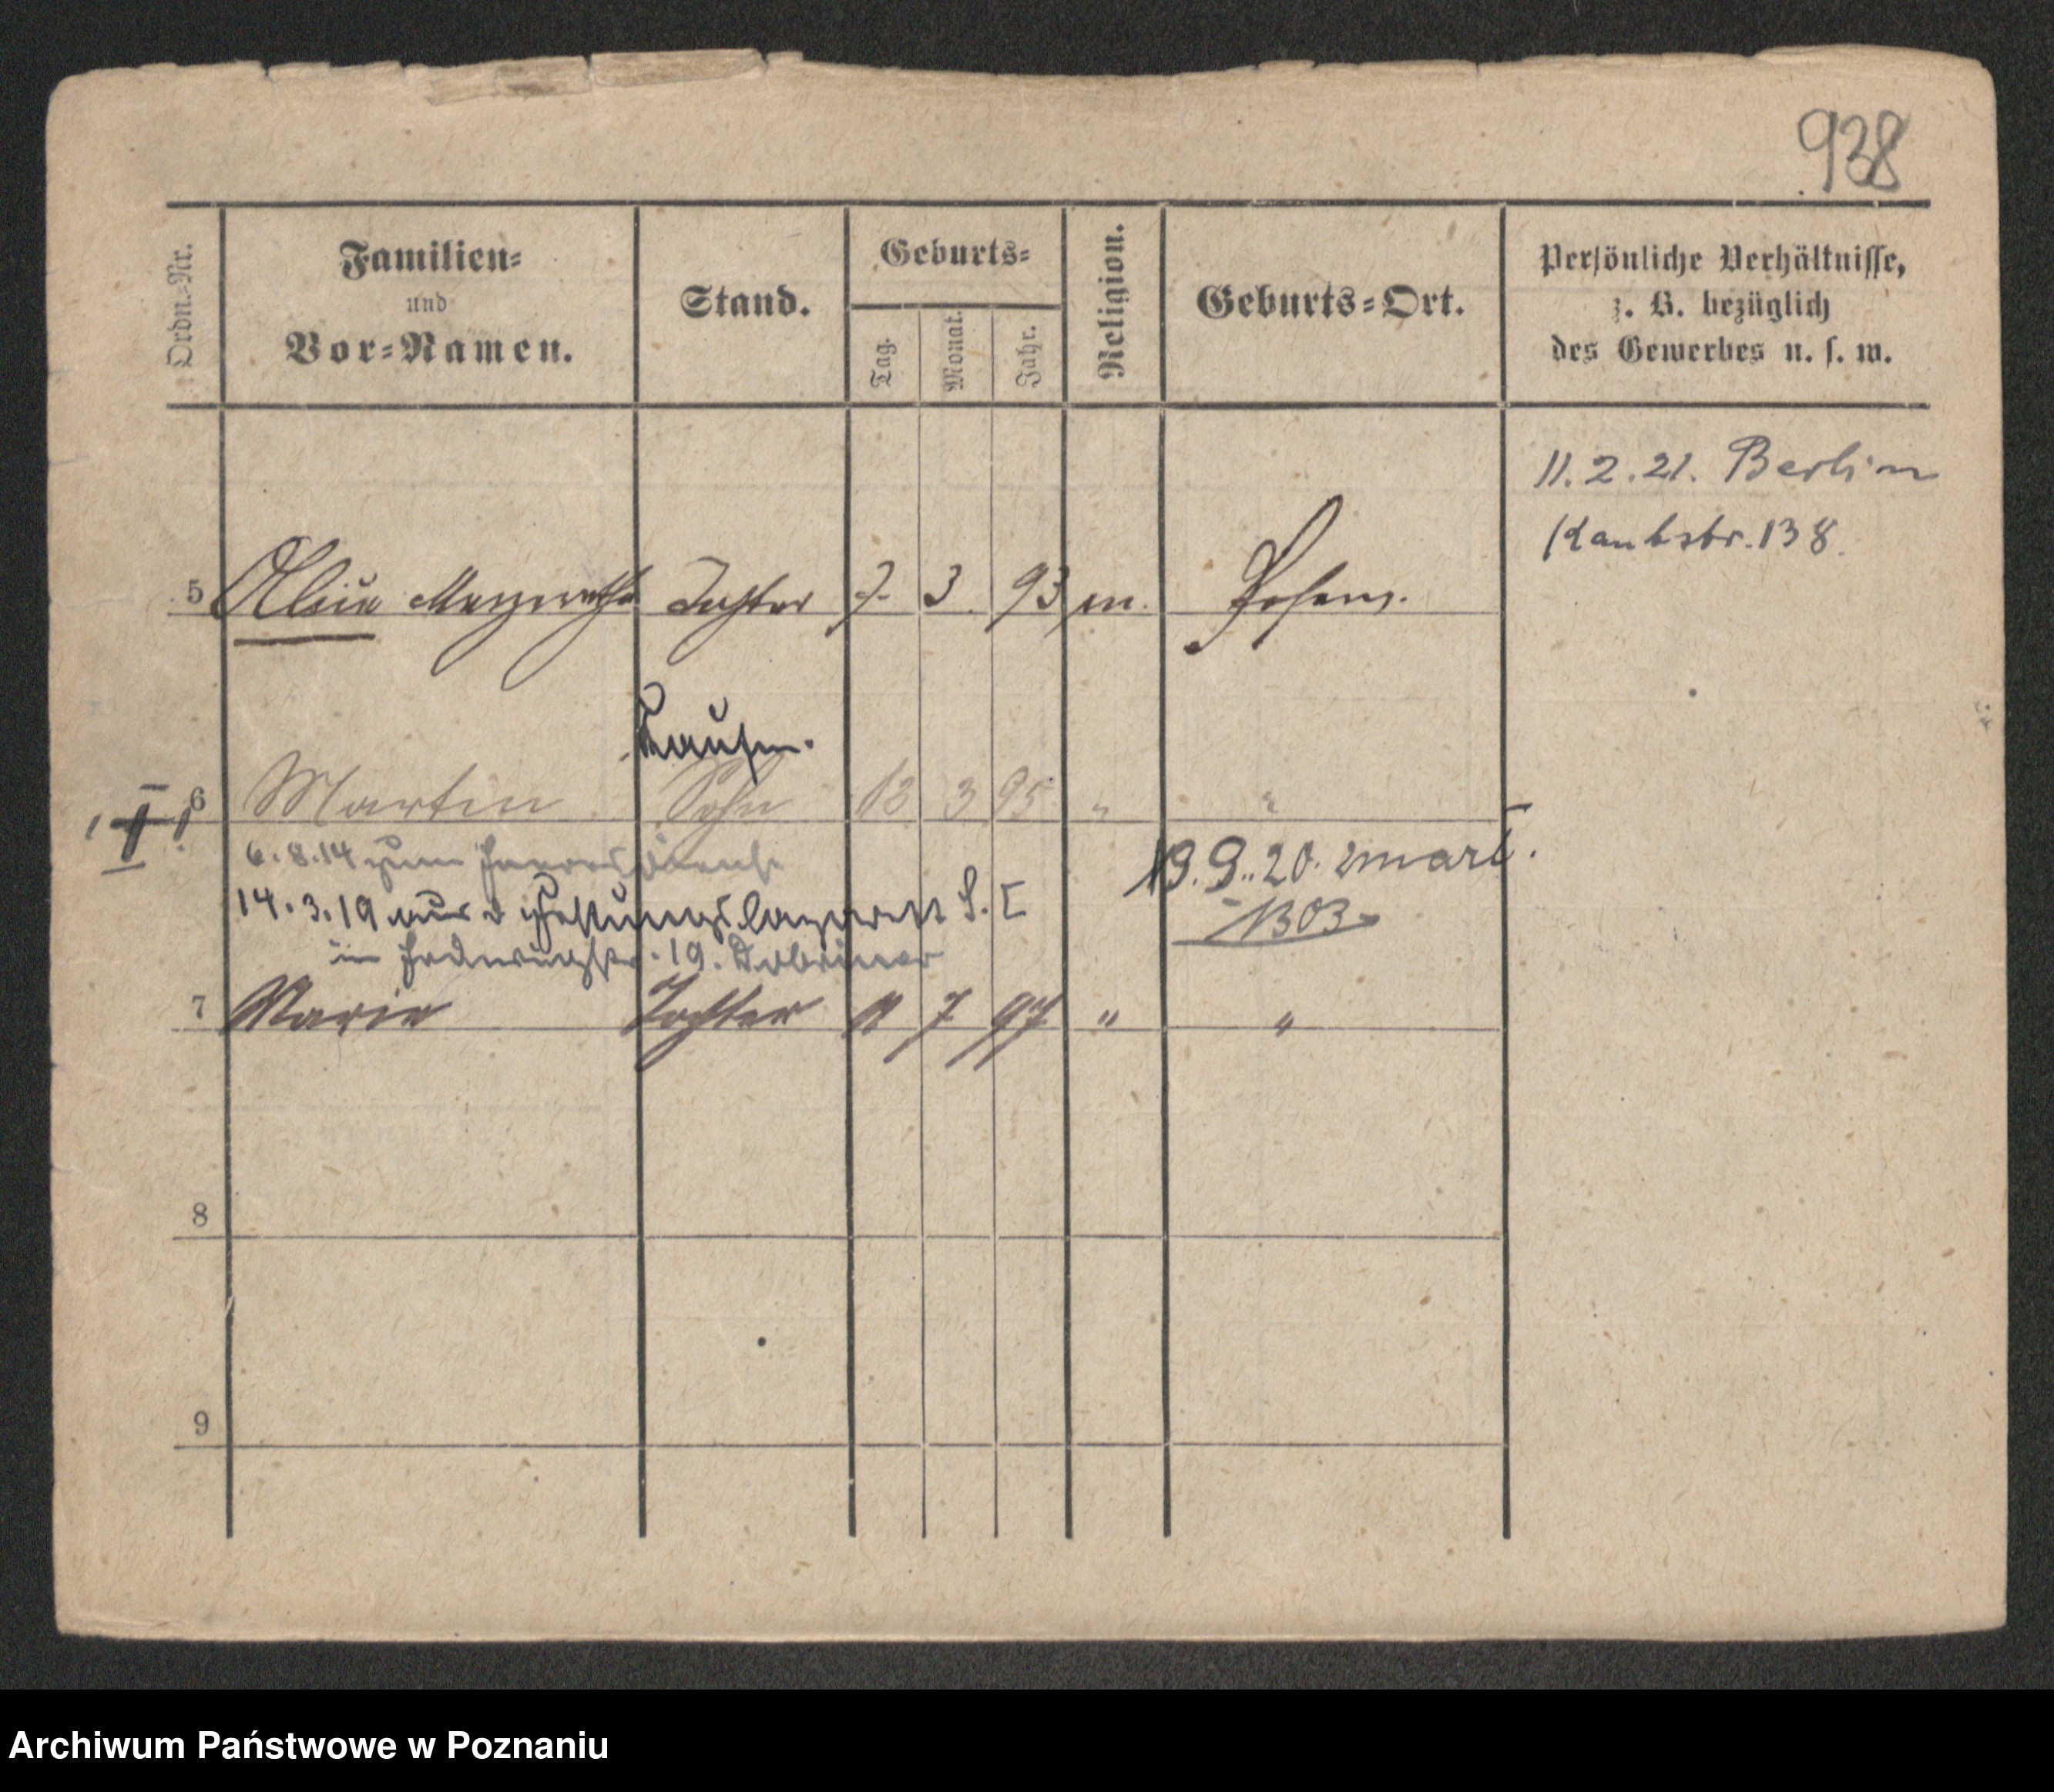 938
Ordn.-Nr.
Familien-
und
Vor-Namen.
Stand.
Geburts-
Tag.
Monat.
Jahr.
Religion.
Geburts-Ort.
Persönliche Verhältnisse,
z. B. bezüglich
des Gewerbes u. s. w.
11.2.21. Berlin
138.
5 Margarethe Tochter 7. 3. 93 m. Posen.
Kaufm.
6 Martin Sohn 12 3 95 " "
6.8.14 zum Heeresdienst
14.3.19 aus d Festungslazarett S. I
19.9.20. zmarł.
1303
in 19. Dobriner
7 Marie Tochter 11 7 97 " "
8
9
Archiwum Państwowe w Poznaniu